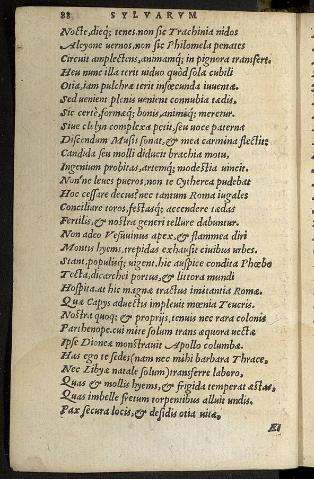 88 SYLVARVM
Nocte, dieq; tenes. non sic Trachinia nidos
Alcyone uernos, non sic Philomela penates
Circuit amplectens, animamq; in pignora transfert.
Heu nunc illa terit uiduo quòd sola cubili
Otia, iam pulchræ terit infœcunda iuuentæ.
Sed uenient plenis uenient connubia tædis,
Sic certè, formæq; bonis, animiq; meretur.
Siue chelyn complexa petit, seu uoce paterna
Discendum Musis sonat, & mea carmina flectit:
Candida seu molli diducit brachia motu,
Ingenium probitas, artemq; modestia uincit.
Nonne leues pueros, non te Cytherea pudebit
Hoc cessare decus? nec tantum Roma iugales
Conciliare toros, festasq; accendere tædas
Fertilis, & nostra generi tellure dabuntur.
Non adeo Vesuuinus apex, & flammea diri
Montis hyems, trepidas exhausit ciuibus urbes.
Stant, populisq; uigent, hic auspice condita Phœbo
Tecta, dicarchei portus, & littora mundi
Hospita, at hic magnæ tractus imitantia Romæ.
Quæ Capys aduectis impleuit mœnia Teucris.
Nostra quoq; & proprijs, tenuis nec rara colonis
Parthenope. cui mite solum trans æquora uectæ
Ipse Dioneæ monstrauit Apollo columbæ.
Has ego te sedes (nam nec mihi barbara Thrace,
Nec Libyæ natale solum) transferre laboro,
Quas & mollis hyems, & frigida temperat æstas,
Quas imbelle fretum torpentibus alluit undis.
Pax secura locis, & desidis otia uitæ,
Et